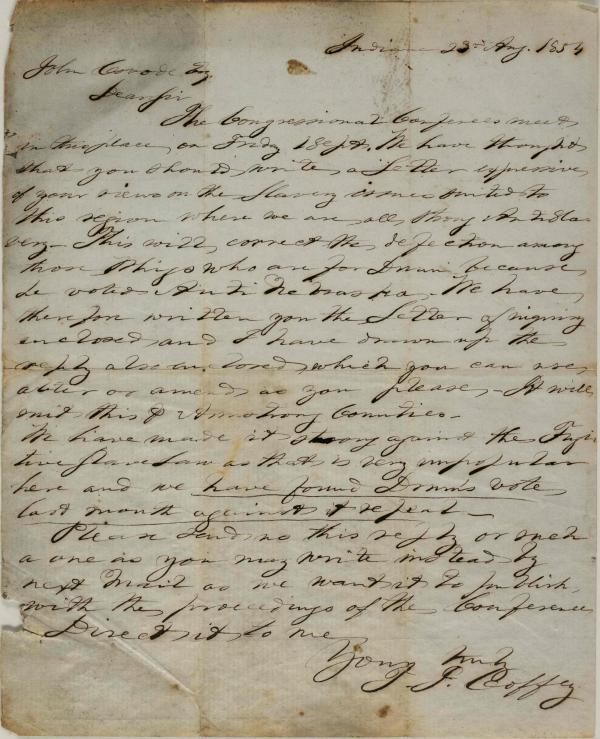 Indiana 23rd Aug. 1854
John Covode Esq
Dear Sir
The Congressional Conferees meet
in this place, on Friday 1 Sept. We have thought
that you should write a Letter expressive
of your views on the Slavery issues suited to
this region where we are all strong Anti Sla-
very - This will correct the defection among
those Whigs who are for Drum because
he voted Anti Nebraska. We have,
therefore written you the Letter of inquiry
enclosed and I have drawn up the
reply also enclosed, which you can use,
alter or amend as you please - It will
suit this & Armstrong Counties -
We have made it strong against the Fugi
tive Slave Law as that is very unpopular
here and we have found Drum's vote
last month against its repeal -
Please send us this reply or such
a one as you may write instead by
next Mail as we want it to publish
with the proceedings of the Conferees
Direct it to me
Yours truly
J. Coffey